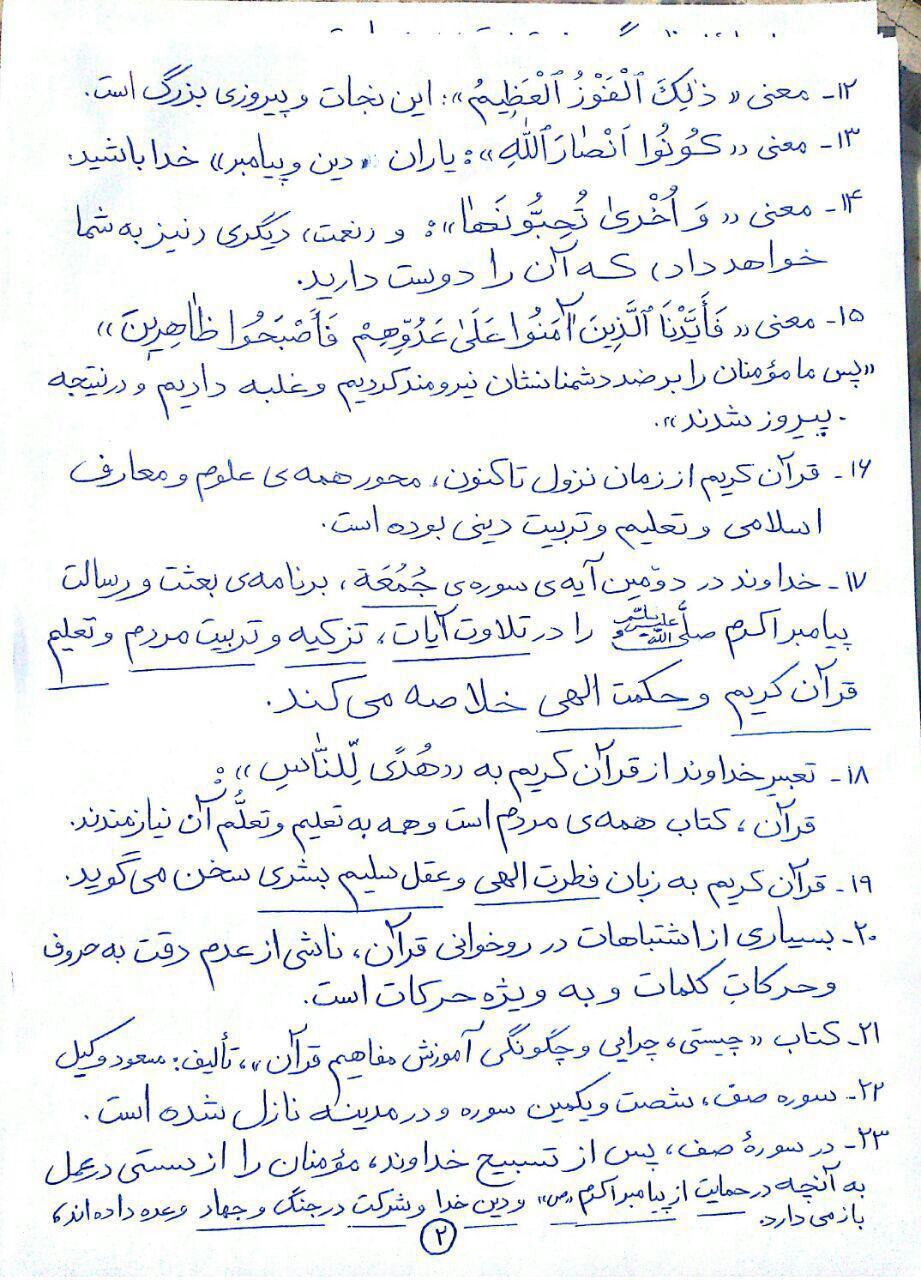 ۱۲- معنی «ذٰلِكَ ٱلْفَوْزُ ٱلْعَظِيمُ»: این نجات و پیروزی بزرگ است.
۱۳- معنی «كُونُوا اَنْصٰارَ ٱللّٰهِ»: یاران «دین و پیامبر» خدا باشید.
۱۴- معنی «وَ اُخْرىٰ تُحِبُّونَهٰا»: و (نعمت) دیگری (نیز به شما
خواهد داد) که آن را دوست دارید.
۱۵- معنی «فَأَيَّدْنَا ٱلَّذِينَ آمَنُوا عَلَىٰ عَدُوِّهِمْ فَأَصْبَحُوا ظٰاهِرِينَ»
«پس ما مؤمنان را بر ضد دشمنانشان نیرومند کردیم و غلبه دادیم و درنتیجه
پیروز شدند».
۱۶- قرآن کریم از زمان نزول تاکنون، محور همه‌ی علوم و معارف
اسلامی و تعلیم و تربیت دینی بوده است.
۱۷- خداوند در دوّمین آیه‌ی سوره‌ی جُمُعَة، برنامه‌ی بعثت و رسالت
پیامبر اکرم صلّی الله علیه و سلم را در تلاوت آیات، تزکیه و تربیت مردم و تعلیم
قرآن کریم و حکمت الهی خلاصه می‌کند.
۱۸- تعبیر خداوند از قرآن کریم به «هُدًى لِّلنّٰاسِ»:
قرآن، کتاب همه‌ی مردم است و همه به تعلیم و تعلُّم آن نیازمندند.
۱۹- قرآن کریم به زبان فطرت الهی و عقل سلیم بشری سخن می‌گوید.
۲۰- بسیاری از اشتباهات در روخوانی قرآن، ناشی از عدم دقت به حروف
و حرکاتِ کلمات و به ویژه حرکات است.
۲۱- کتاب «چیستی، چرایی و چگونگی آموزش مفاهیم قرآن»، تألیف: مسعود وکیل
۲۲- سوره صف، شصت و یکمین سوره و در مدینه نازل شده است.
۲۳- در سورهٔ صف، پس از تسبیح خداوند، مؤمنان را از سستی در عمل
به آنچه در حمایت از پیامبر اکرم «ص» و دین خدا و شرکت در جنگ و جهاد وعده داده‌اند،
باز می دارد.
۲